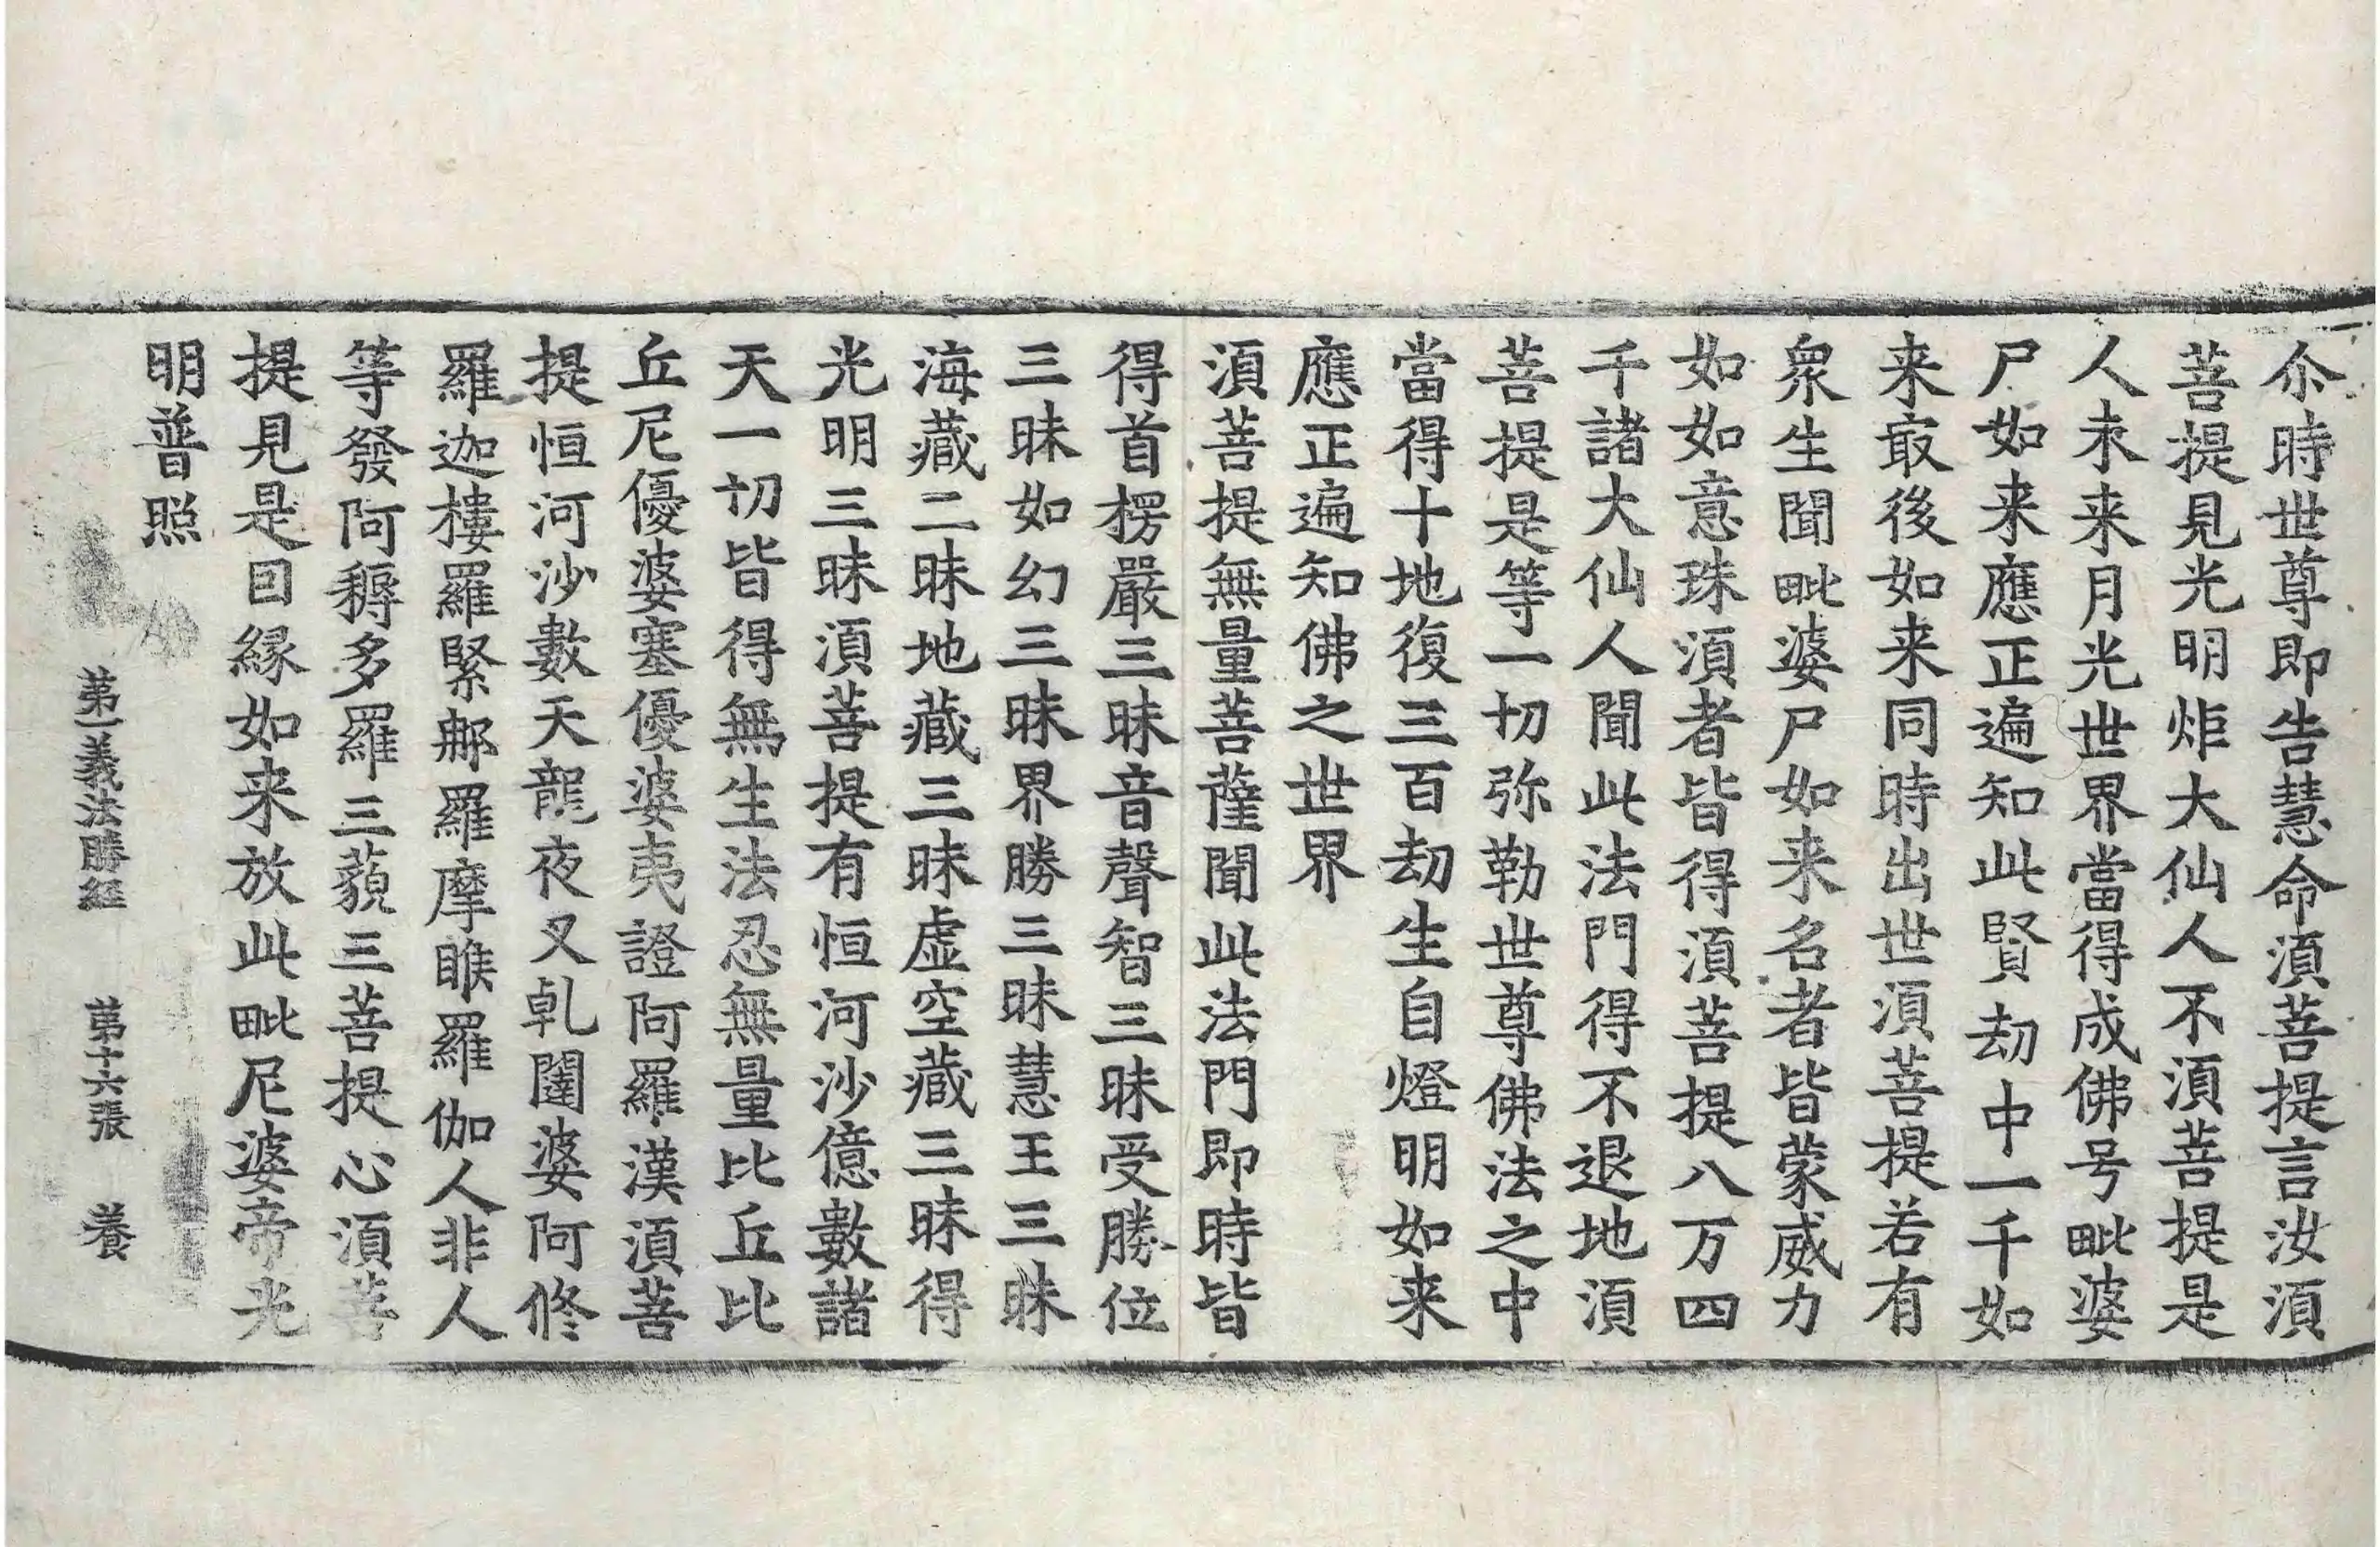 尒時世尊即告慧命湏菩提言汝湏
菩提見光明炬大仙人不湏菩提是
人未来月光世界當得成佛号毗婆
尸如来應正遍知此賢劫中一千如
来㝡後如来同時出世湏菩提若有
衆生聞毗婆尸如来名者皆蒙威力
如如意珠湏者皆得湏菩提八万四
千諸大仙人聞此法門得不退地湏
菩提是等一切弥勒世尊佛法之中
當得十地復三百劫生自燈明如来
應正遍知佛之世界
湏菩提無量菩薩聞此法門即時皆
得首楞嚴三昧音聲智三昧受勝位
三昧如幻三昧界勝三昧慧王三昧
海藏二昧地藏三昧虛空藏三昧得
光明三昧湏菩提有恒河沙億數諸
天一切皆得無生法忍無量比丘比
丘尼優婆塞優婆夷證阿羅漢湏菩
提恒河沙數天龍夜叉乹闥婆阿修
羅迦樓羅緊郍羅摩睺羅伽人非人
等發阿耨多羅三藐三菩提心湏菩
提見是囙縁如来放此毗尼婆帝光
明普照
第一義法勝経 第十六張 養